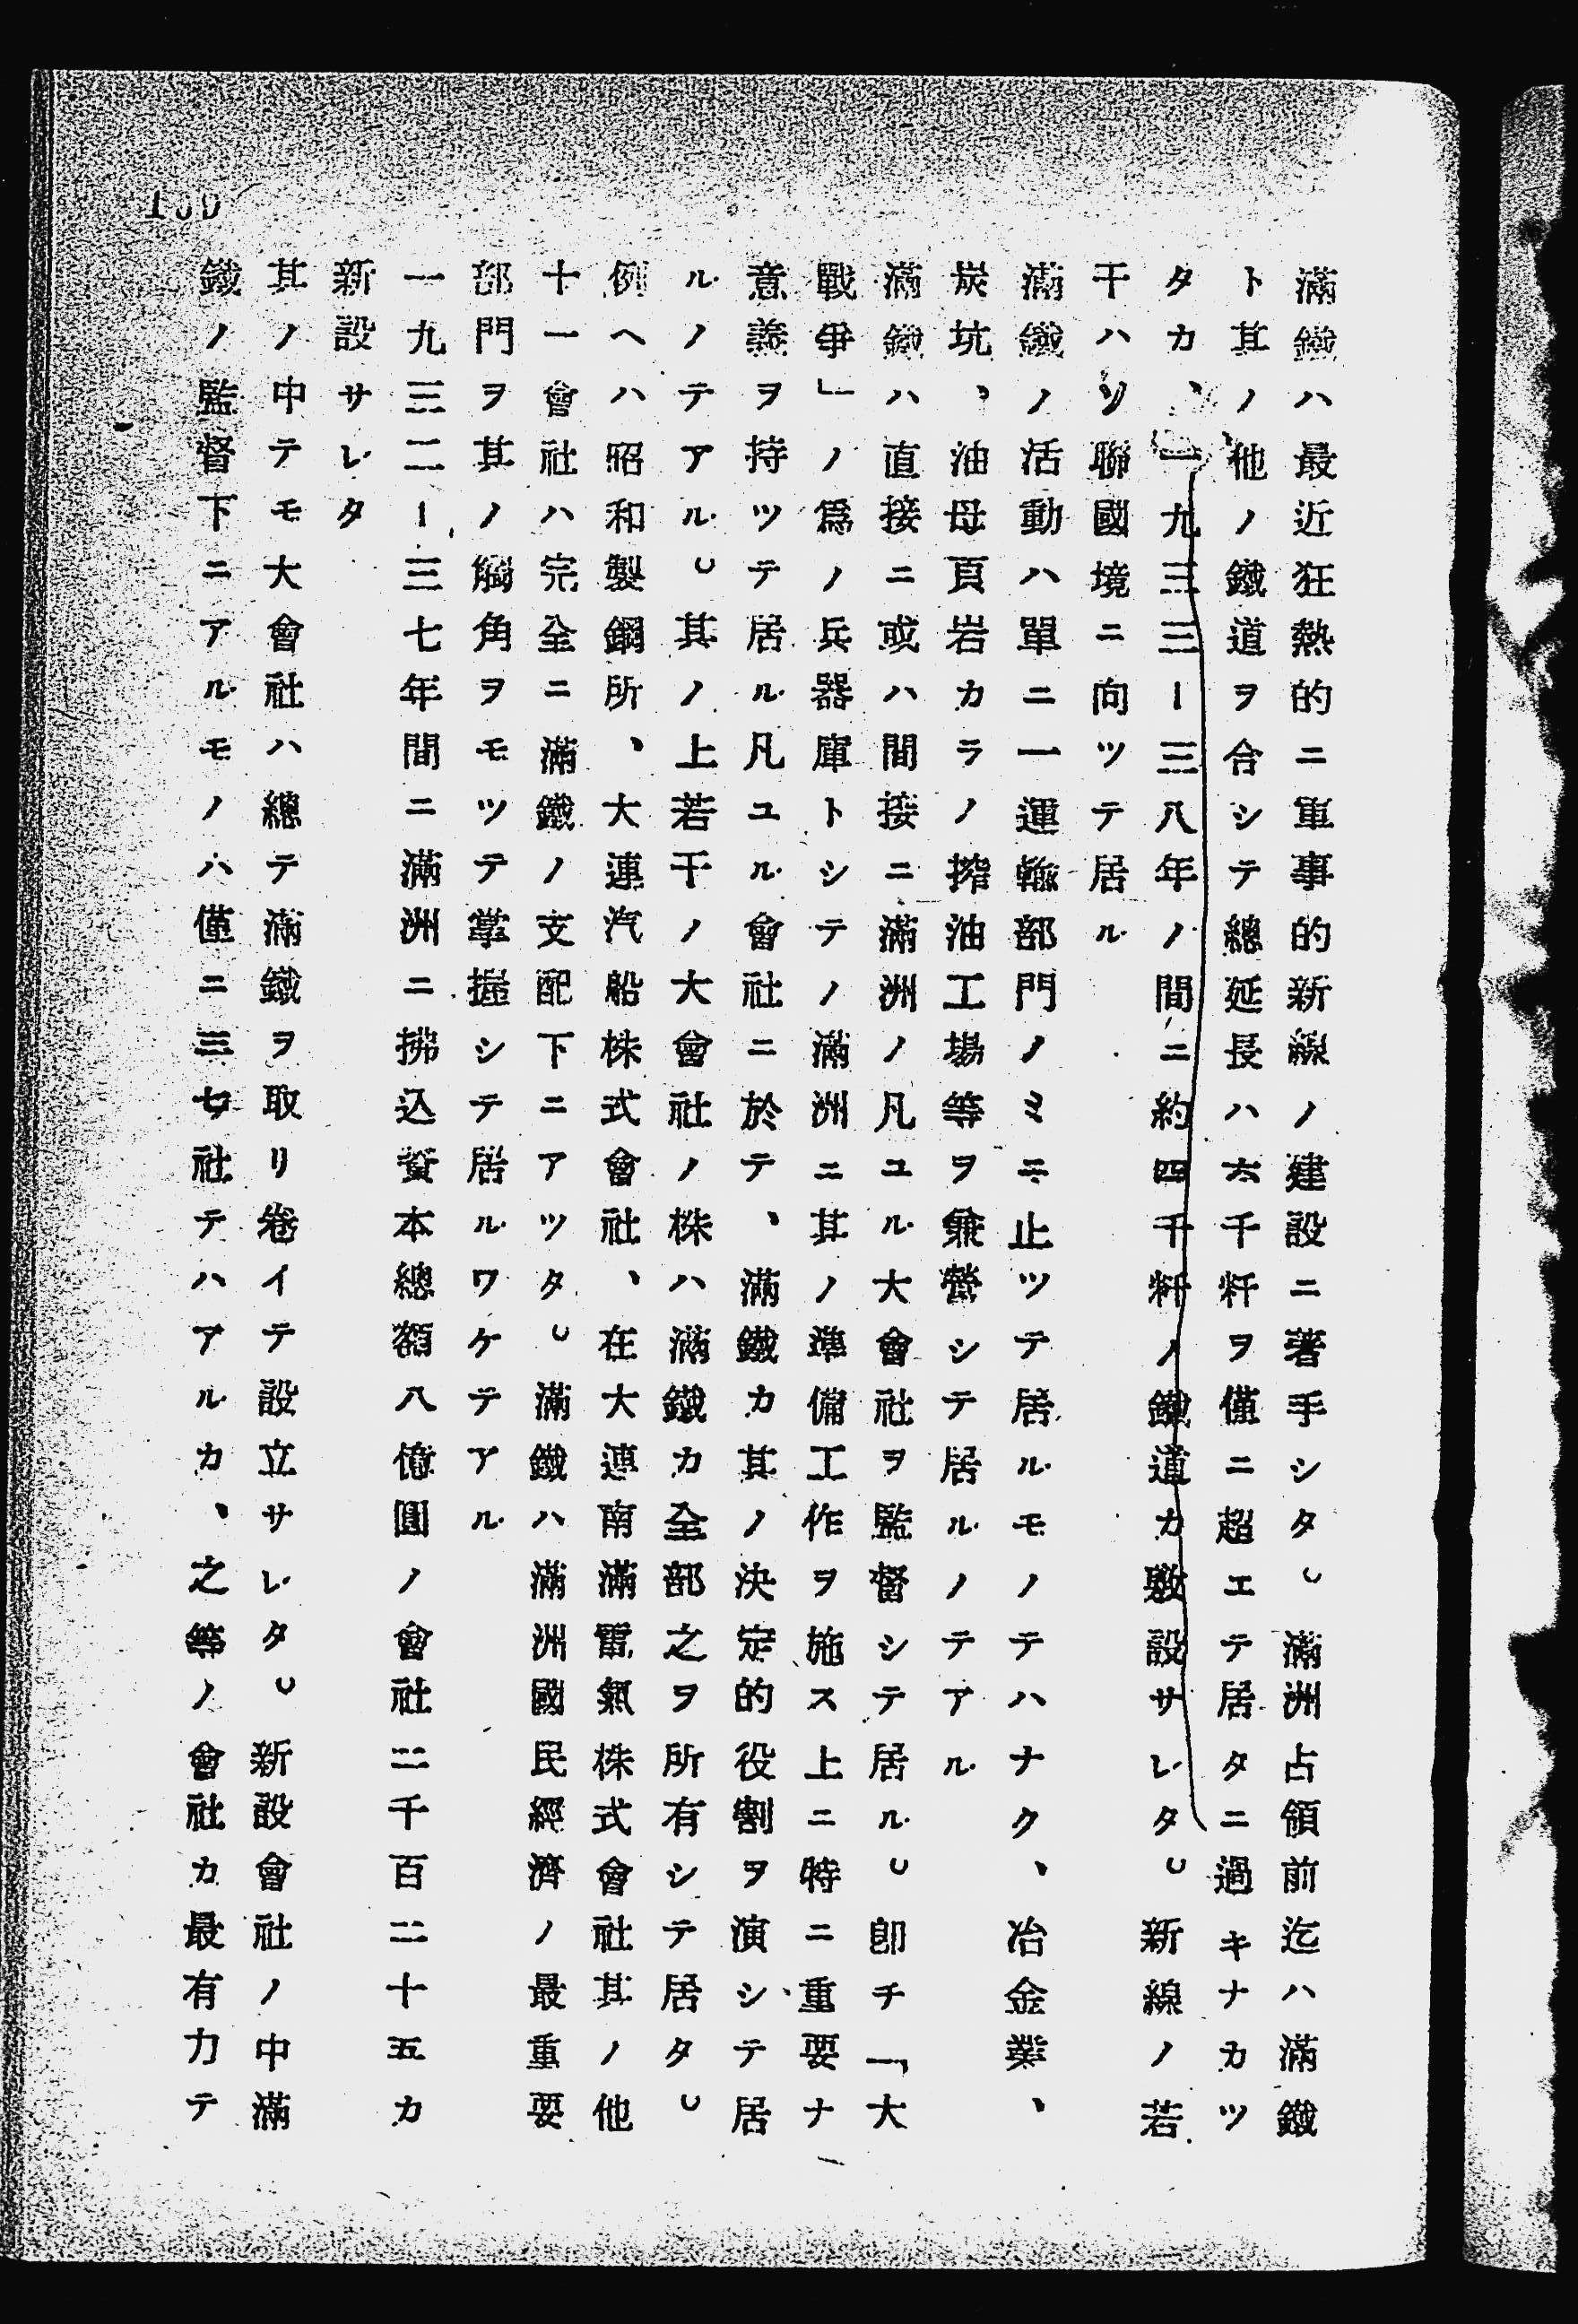 滿鐵ハ最近狂熱的ニ軍事的新線ノ建設ニ著手シタ。滿洲占領前迄ハ滿鐵
ト其ノ他ノ鐵道ヲ合シテ總延長ハ六千粁ヲ僅ニ超エテ居タニ過キナカツ
タカ、一九三三ー三八年ノ間ニ約四千粁ノ鐵道カ敷設サレタ。新線ノ若
干ハソ聯國境ニ向ツテ居ル
滿鐵ノ活動ハ單ニ一運輸部門ノミニ止ツテ居ルモノテハナク、冶金業、
炭坑、油母頁岩カラノ搾油工場等ヲ兼營シテ居ルノテアル
滿鐵ハ直接ニ或ハ間接ニ滿洲ノ凡ユル大會社ヲ監督シテ居ル。卽チ「大
戰爭」ノ爲ノ兵器庫トシテノ滿洲ニ其ノ準備工作ヲ施ス上ニ特ニ重要ナ
意義ヲ持ツテ居ル凡ユル會社ニ於テ、滿鐵カ其ノ決定的役割ヲ演シテ居
ルノテアル。其ノ上若干ノ大會社ノ株ハ滿鐵カ全部之ヲ所有シテ居タ。
例ヘハ昭和製鋼所、大連汽船株式會社、在大連南滿電氣株式會社其ノ他
十一會社ハ完全ニ滿鐵ノ支配下ニアツタ。滿鐵ハ滿洲國民經濟ノ最重要
部門ヲ其ノ觸角ヲモツテ掌握シテ居ルワケテアル
一九三二ー三七年間ニ滿洲ニ拂込資本總額八億圓ノ會社二千百二十五カ
新設サレタ
其ノ中テモ大會社ハ總テ滿鐵ヲ取リ卷イテ設立サレタ。新設會社ノ中滿
鐵ノ監督下ニアルモノハ僅ニ三七社テハアルカ、之等ノ會社カ最有力テ